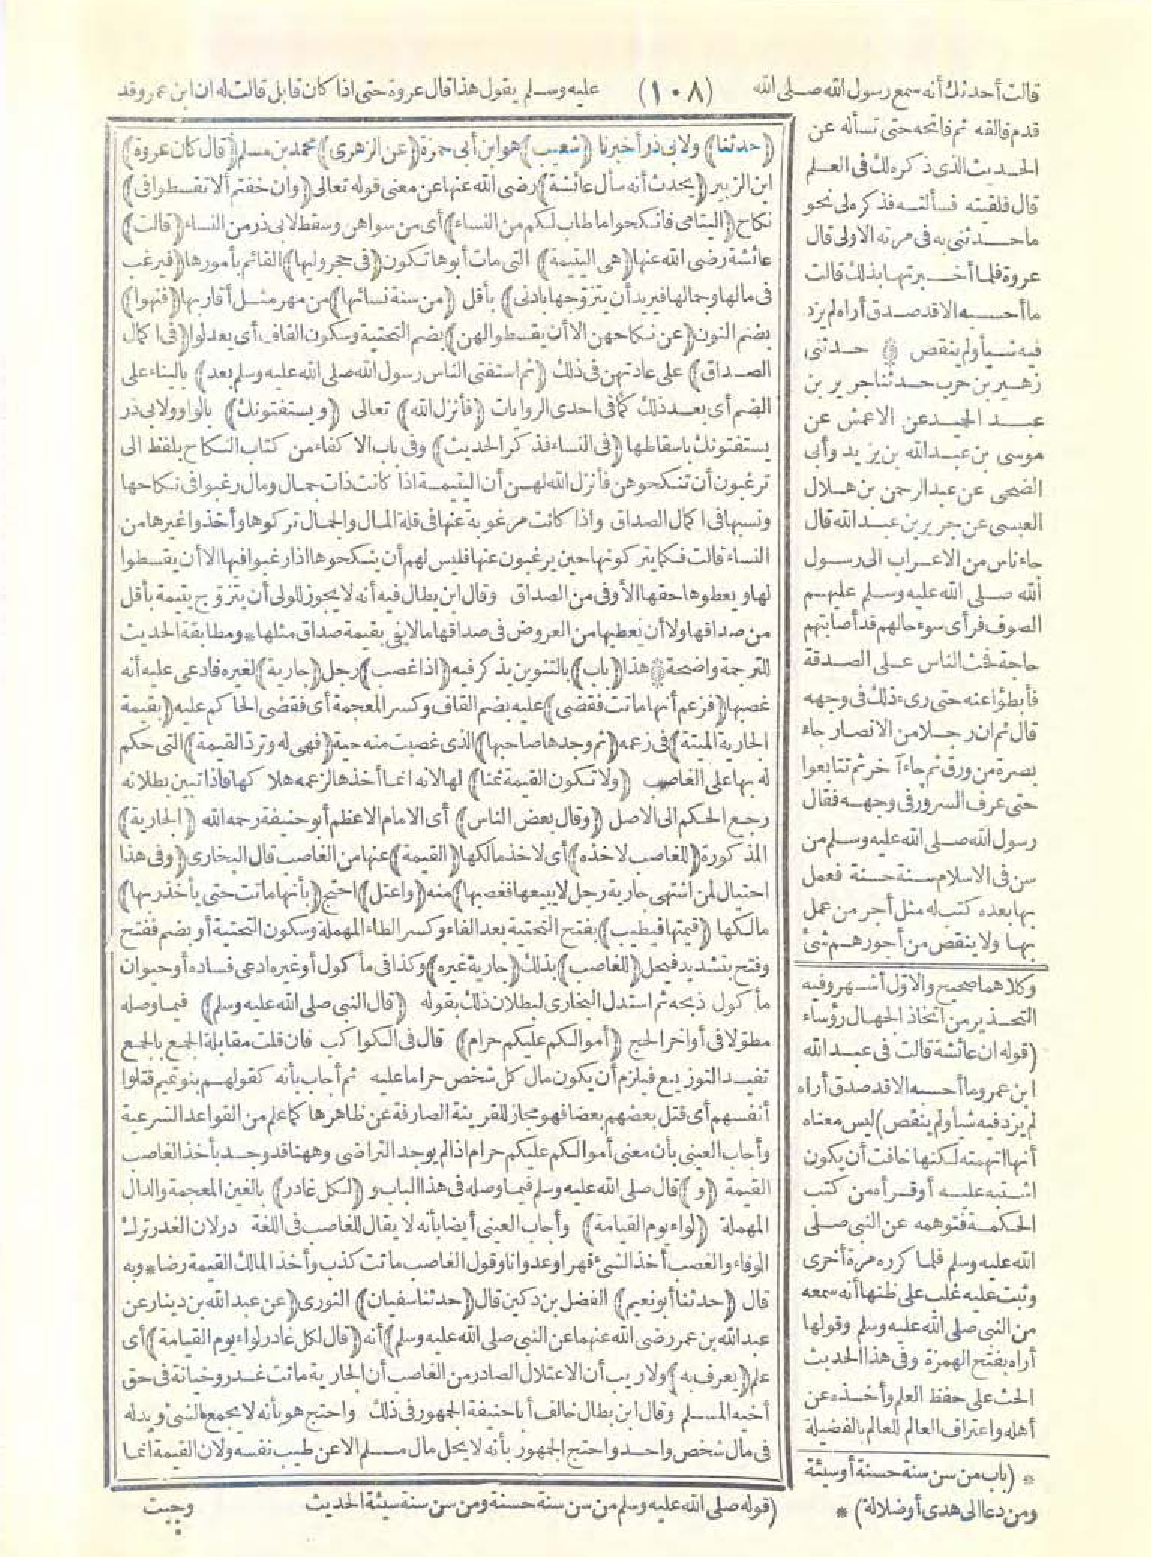 قالت أحدثك أنه سمع رسول الله صلى الله (١٠٨) عليه وسلم يقول هذا قال عروة حتى اذا كان قابل قالت له ان ابن عمرو قد
قدم فالقه ثم فاتحه حتى تسأله عن
الحديث الذى ذكره لك فى العلم
قال فلقيته فسألته فذكره لى نحو
ما حدثنى به فى مرته الاولى قال
عروة فلما أخبرتها بذلك قالت
ما أحسبه الا قد صدق أراه لم يزد
فيه شيأ ولم ينقص حدثنى
زهير بن حرب حدثنا جرير بن
عبد الحميد عن الاعمش عن
موسى بن عبد الله بن يزيد وأبى
الضحى عن عبد الرحمن بن هلال
العبسى عن جرير بن عبد الله قال
جاء ناس من الاعراب الى رسول
الله صلى الله عليه وسلم عليهم
الصوف فرأى سوء حالهم قد أصابتهم
حاجة فحث الناس على الصدقة
فأبطؤا عنه حتى رىء ذلك فى وجهه
قال ثم ان رجلا من الانصار جاء
بصرة من ورق ثم جاء آخر ثم تتابعوا
حتى عرف السرور فى وجهه فقال
رسول الله صلى الله عليه وسلم من
سن فى الاسلام سنة حسنة فعمل
بها بعده كتب له مثل أجر من عمل
بها ولا ينقص من أجورهم شئ
وكلاهما صحيح والاول أشهر وفيه
التحذير من اتخاذ الجهال رؤساء
(قوله ان عائشة قالت فى عبد الله
ابن عمرو ما أحسبه الا قد صدق أراه
لم يزد فيه شيأ ولم ينقص) ليس معناه
أنها اتهمته لكنها خافت أن يكون
اشتبه عليه أو قرأه من كتب
الحكمة فتوهمه عن النبى صلى
الله عليه وسلم فلما كرره مرة أخرى
وثبت عليه غلب على ظنها أنه سمعه
من النبى صلى الله عليه وسلم وقولها
أراه بفتح الهمزة وفى هذا الحديث
الحث على حفظ العلم وأخذه عن
أهله واعتراف العالم للعالم بالفضيلة
* (باب من سن سنة حسنة أو سيئة
ومن دعا الى هدى أو ضلالة) *
(حدثنا) ولابى ذر أخبرنا (شعيب) هو ابن أبى حمزة (عن الزهرى) محمد بن مسلم (قال كان عروة)
ابن الزبير (يحدث أنه سأل عائشة) رضى الله عنها عن معنى قوله تعالى (وان خفتم ألا تقسطوا فى)
نكاح (اليتامى فانكحوا ما طاب لكم من النساء) أى من سواهن وسقط لابى ذر من النساء (قالت)
عائشة رضى الله عنها (هى اليتيمة) التى مات أبوها تكون (فى حجر وليها) القائم بأمورها (فيرغب
فى مالها وجمالها فيريد أن يتزوجها بادنى) بأقل (من سنة نسائها) من مهر مثل أقاربها (فنهوا)
بضم النون (عن نكاحهن الا أن يقسطوا لهن) بضم التحتية وسكون القاف أى يعدلوا (فى اكمال
الصداق) على عادتهن فى ذلك (ثم استفتى الناس رسول الله صلى الله عليه وسلم بعد) بالبناء على
الضم أى بعد ذلك كما فى احدى الروايات (فأنزل الله) تعالى (ويستفتونك) بالواو ولابى ذر
يستفتونك باسقاطها (فى النساء فذكر الحديث) وفى باب الاكفاء من كتاب النكاح بلفظ الى
ترغبون أن تنكحوهن فأنزل الله لهن أن اليتيمة اذا كانت ذات جمال ومال رغبوا فى نكاحها
ونسبها فى اكمال الصداق واذا كانت مرغوبة عنها فى قلة المال والجمال تركوها وأخذوا غيرها من
النساء قالت فكما يتركونها حين يرغبون عنها فليس لهم أن ينكحوها اذا رغبوا فيها الا أن يقسطوا
لها ويعطوها حقها الأوفى من الصداق وقال ابن بطال فيه أنه لا يجوز للولى أن يتزوج يتيمة بأقل
من صداقها ولا أن يعطيها من العروض فى صداقها ما لا يفى بقيمة صداق مثلها * ومطابقة الحديث
للترجمة واضحة هذا (باب) بالتنوين يذكر فيه (اذا غصب) رجل (جارية) لغيره فادعى عليه أنه
غصبها (فزعم أنها ماتت فقضى) عليه بضم القاف وكسر المعجمة أى فقضى الحاكم عليه (بقيمة
الجارية الميتة) فى زعمه (ثم وجدها صاحبها) الذى غصبت منه حية (فهى له وترد القيمة) التى حكم
له بها على الغاصب (ولا تكون القيمة ثمنا) لها لانه انما أخذها لزعمه هلاكها فاذا تبين بطلانه
رجع الحكم الى الاصل (وقال بعض الناس) أى الامام الاعظم أبو حنيفة رحمه الله (الجارية)
المذكورة (للغاصب لاخذه) أى لاخذ مالكها (القيمة) عنها من الغاصب قال البخارى (وفى هذا
احتيال لمن اشتهى جارية رجل لا يبيعها فغصبها) منه (واعتل) احتج (بأنها ماتت حتى يأخذ ربها)
مالكها (قيمتها فيطيب) بفتح التحتية بعد الفاء وكسر الطاء المهملة وسكون التحتية أو بضم ففتح
وفتح بتشديد فيحل (للغاصب) بذلك (جارية غيره) وكذا فى مأكول أو غيره ادعى فساده أو حيوان
مأكول ذبحه ثم استدل البخارى لبطلان ذلك بقوله (قال النبى صلى الله عليه وسلم) فيما وصله
مطولا فى أواخر الحج (أموالكم عليكم حرام) قال فى الكواكب فان قلت مقابلة الجمع بالجمع
تفيد التوزيع فيلزم أن يكون مال كل شخص حراما عليه ثم أجاب بأنه كقولهم بنو تميم قتلوا
أنفسهم أى قتل بعضهم بعضا فهو مجاز للقرينة الصارفة عن ظاهرها كما علم من القواعد الشرعية
وأجاب العينى بأن معنى أموالكم عليكم حرام اذا لم يوجد التراضى وههنا قد وجد بأخذ الغاصب
القيمة (و) قال صلى الله عليه وسلم فيما وصله فى هذا الباب و (لكل غادر) بالغين المعجمة والدال
المهملة (لواء يوم القيامة) وأجاب العينى أيضا بأنه لا يقال للغاصب فى اللغة در لان الغدر ترك
الوفاء والغصب أخذ الشئ قهرا وعدوانا وقول الغاصب ماتت كذب وأخذ المالك القيمة رضا * وبه
قال (حدثنا أبو نعيم) الفضل بن دكين قال (حدثنا سفيان) الثورى (عن عبد الله بن دينار عن
عبد الله بن عمر رضى الله عنهما عن النبى صلى الله عليه وسلم) أنه (قال لكل غادر لواء يوم القيامة) أى
علم (يعرف به) ولا ريب أن الاعتلال الصادر من الغاصب أن الجارية ماتت غدر وخيانة فى حق
أخيه المسلم وقال ابن بطال خالف أبا حنيفة الجمهور فى ذلك واحتج هو بأنه لا يجمع الشئ وبدله
فى مال شخص واحد واحتج الجمهور بأنه لا يحل مال مسلم الا عن طيب نفسه ولان القيمة انما
(قوله صلى الله عليه وسلم من سن سنة حسنة ومن سن سنة سيئة الحديث
وجبت